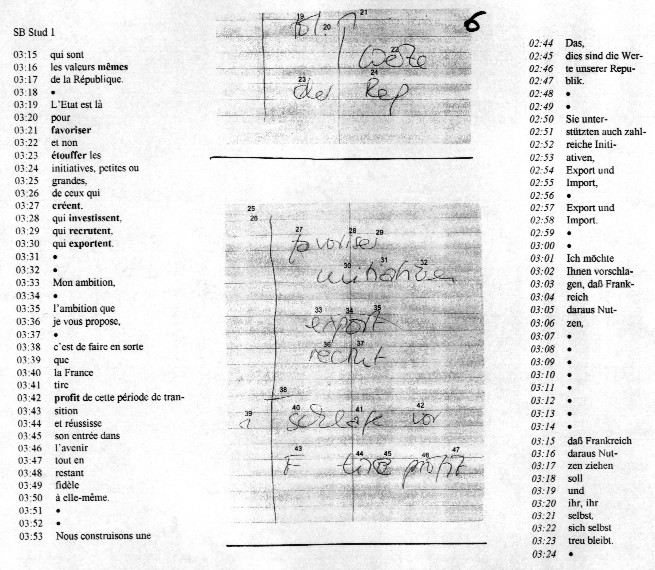 SB Stud 1
03:15 qui sont
03:16 les valeurs mêmes
03:17 de la République.
03:18 •
03:19 L'Etat est là
03:20 pour
03:21 favoriser
03:22 et non
03:23 étouffer les
03:24 initiatives, petites ou
03:25 grandes,
03:26 de ceux qui
03:27 créent,
03:28 qui investissent,
03:29 qui recrutent,
03:30 qui exportent.
03:31 •
03:32 •
03:33 Mon ambition,
03:34 •
03:35 l'ambition que
03:36 je vous propose,
03:37 •
03:38 c'est de faire en sorte
03:39 que
03:40 la France
03:41 tire
03:42 profit de cette période de tran-
03:43 sition
03:44 et réussisse
03:45 son entrée dans
03:46 l'avenir
03:47 tout en
03:48 restant
03:49 fidèle
03:50 à elle-même.
03:51 •
03:52 •
03:53 Nous construisons une
6
19 20 21
22
Werte
23 24
der Rep
25
26
27 28 29
favoriser
30 31 32
initiativen
33 34 35
export
36 37
recrut
38
39 40 41 42
schlage vor
43 44 45 46 47
F tire profit
02:44 Das,
02:45 dies sind die Wer-
02:46 te unserer Repu-
02:47 blik.
02:48 •
02:49 •
02:50 Sie unter-
02:51 stützten auch zahl-
02:52 reiche Initi-
02:53 ativen,
02:54 Export und
02:55 Import,
02:56 •
02:57 Export und
02:58 Import.
02:59 •
03:00 •
03:01 Ich möchte
03:02 Ihnen vorschla-
03:03 gen, daß Frank-
03:04 reich
03:05 daraus Nut-
03:06 zen,
03:07 •
03:08 •
03:09 •
03:10 •
03:11 •
03:12 •
03:13 •
03:14 •
03:15 daß Frankreich
03:16 daraus Nut-
03:17 zen ziehen
03:18 soll
03:19 und
03:20 ihr, ihr
03:21 selbst,
03:22 sich selbst
03:23 treu bleibt.
03:24 •